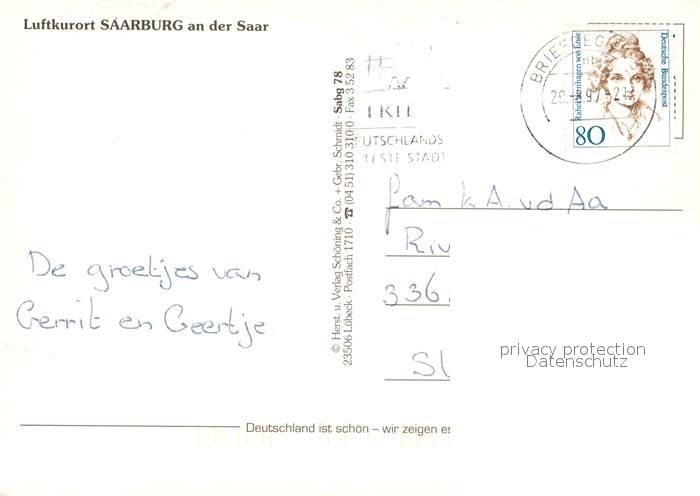 Luftkurort SAARBURG an der Saar
De groetjes van
Gerrit en Geertje
© Herst. u. Verlag Schöning & Co. + Gebr. Schmidt · Sabg 78
23506 Lübeck · Postfach 1710 · ☎ (04 51) 310 310 · Fax 3 52 83
TRIE
EUTSCHLANDS
TESTE STADT
BRIEF
97-21
Rahel Varnhagen von Ense
Deutsche Bundespost
80
Fam k A. vd Aa
Riv
336
Sl
privacy protection
Datenschutz
Deutschland ist schön – wir zeigen es